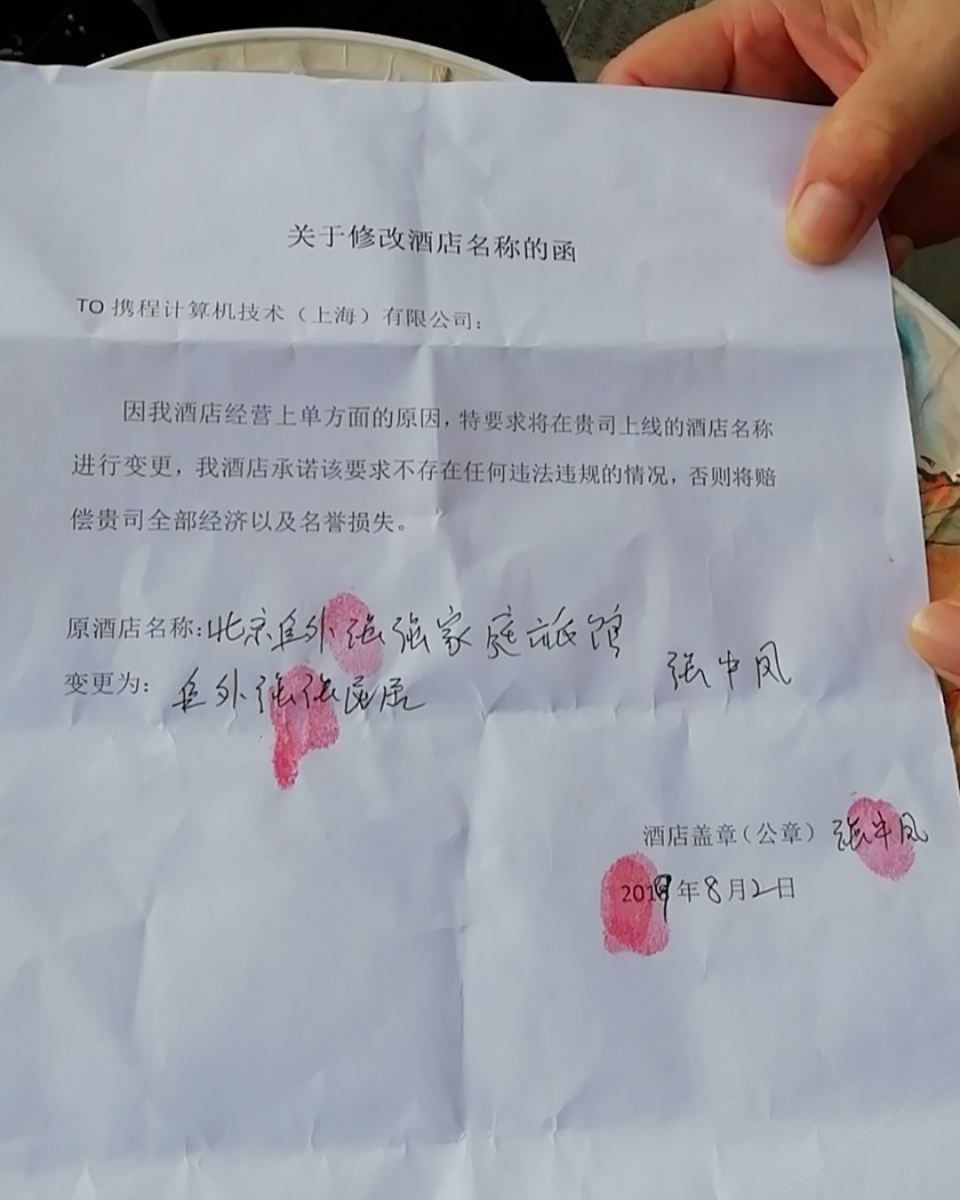 关于修改酒店名称的函
TO 携程计算机技术（上海）有限公司：
因我酒店经营上单方面的原因，特要求将在贵司上线的酒店名称
进行变更，我酒店承诺该要求不存在任何违法违规的情况，否则将赔
偿贵司全部经济以及名誉损失。
原酒店名称：北京阜外强强家庭旅馆
变更为：阜外强强民居
张中凤
酒店盖章（公章） 张中凤
2019年8月2日